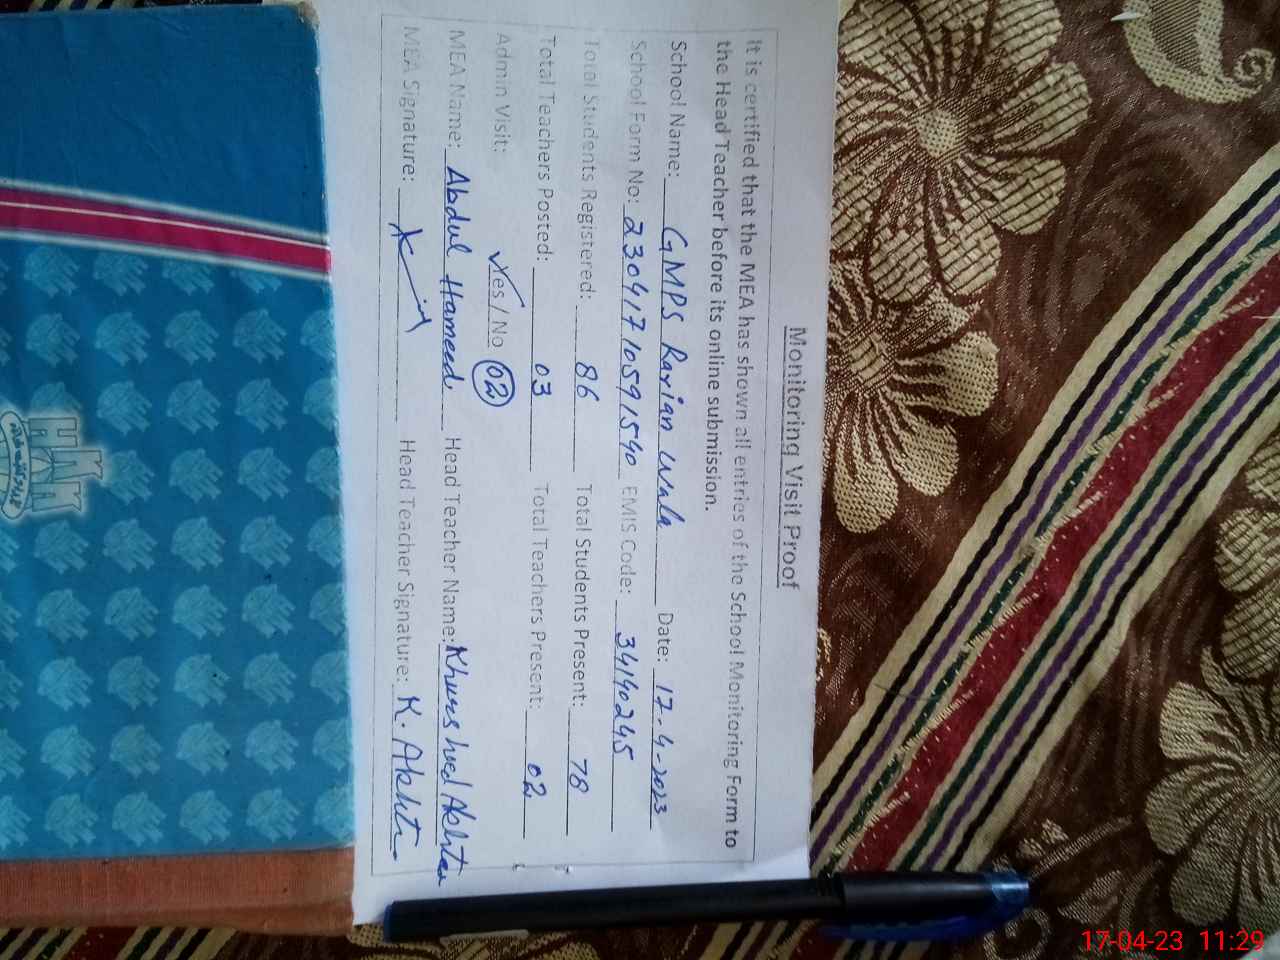 Monitoring Visit Proof
It is certified that the MEA has shown all entries of the School Monitoring Form to
the Head Teacher before its online submission.
School Name: GMPS Rarian Wala Date: 17-4-2023
School Form No: 23041710591590 EMIS Code: 34140245
Total Students Registered: 86 Total Students Present: 78
Total Teachers Posted: 03 Total Teachers Present: 02
Admin Visit: Yes / No 02
MEA Name: Abdul Hameed Head Teacher Name: Khurshed Akhtar
MEA Signature: Head Teacher Signature: K. Akhtar
HKR
17-04-23 11:29